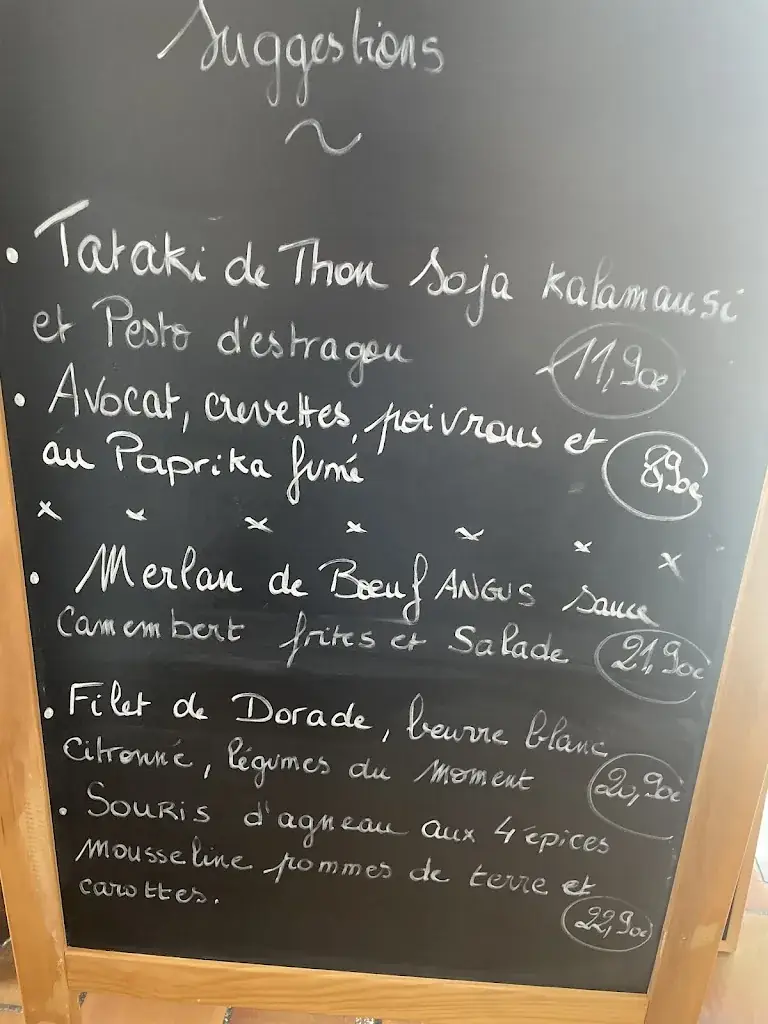 Suggestions
~
. Tataki de Thon Soja Kalamausi
et Pesto d'estragon 11,90€
. Avocat, crevettes, poivrons et
au Paprika fumé 8,90€
x x x x x x x
. Merlan de Boeuf ANGUS sauce
Camembert frites et Salade 21,90€
. Filet de Dorade, beurre blanc
citronné, légumes du moment 20,90€
. SOURIS d'agneau aux 4 épices
Mousseline pommes de terre et
carottes. 22,90€